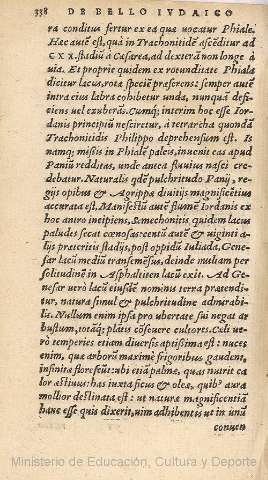 338 DE BELLO IVDAICO
ra conditus fertur ex ea quæ uocatur Phiale.
Hæc autē est, quà in Trachonitidē ascēditur ad
CXX. stadiū à Cæsarea, ad dexterā non longè à
uia. Et proprie quidem ex rotunditate Phiala
dicitur lacus, rotæ speciē præferens: semper autē
intra eius labra cohibetur unda, nunquā defi-
ciens uel exuberās. Cumq; interim hoc esse Ior-
danis principiū nesciretur, à tetrarcha quondā
Trachonitidos Philippo deprehensum est. Is
namq; missis in Phialē paleis, inuenit eas apud
Paniū redditas, unde antea fluuius nasci cre-
debatur. Naturalis qdē pulchritudo Panij, re-
gijs opibus & Agrippæ diuitijs magnificētius
accurata est. Manifestū autē flumē Iordanis ex
hoc antro incipiens, Semechonitis quidem lacus
paludes secat cœnosas: centū autē & uiginti a-
lijs præteritis stadijs, post oppidū Iuliada, Gene-
sar lacū mediū transmeans, deinde multam per
solitudinē in Asphaltitem lacū exit. Ad Gene-
sar uerò lacū eiusdē nominis terra prætendi-
tur, natura simul & pulchritudine admirabi-
lis. Nullum enim ipsa pro ubertate sui negat ar-
bustum, totāq; plātis cōseuere cultores. Cœli ue-
rò temperies etiam diuersis aptissima est: nuces
enim, quæ arborū maximè frigoribus gaudent,
infinitæ florēt, cubi etiā palmæ, quas nutrit ca-
lor æstiuus: his iuxta ficus & oleæ, quib⁹ aura
mollior destinata est: ut naturæ magnificentiā
hanc esse quis dixerit, uim adhibentis ut in unū
conuen
Ministerio de Educación, Cultura y Deporte